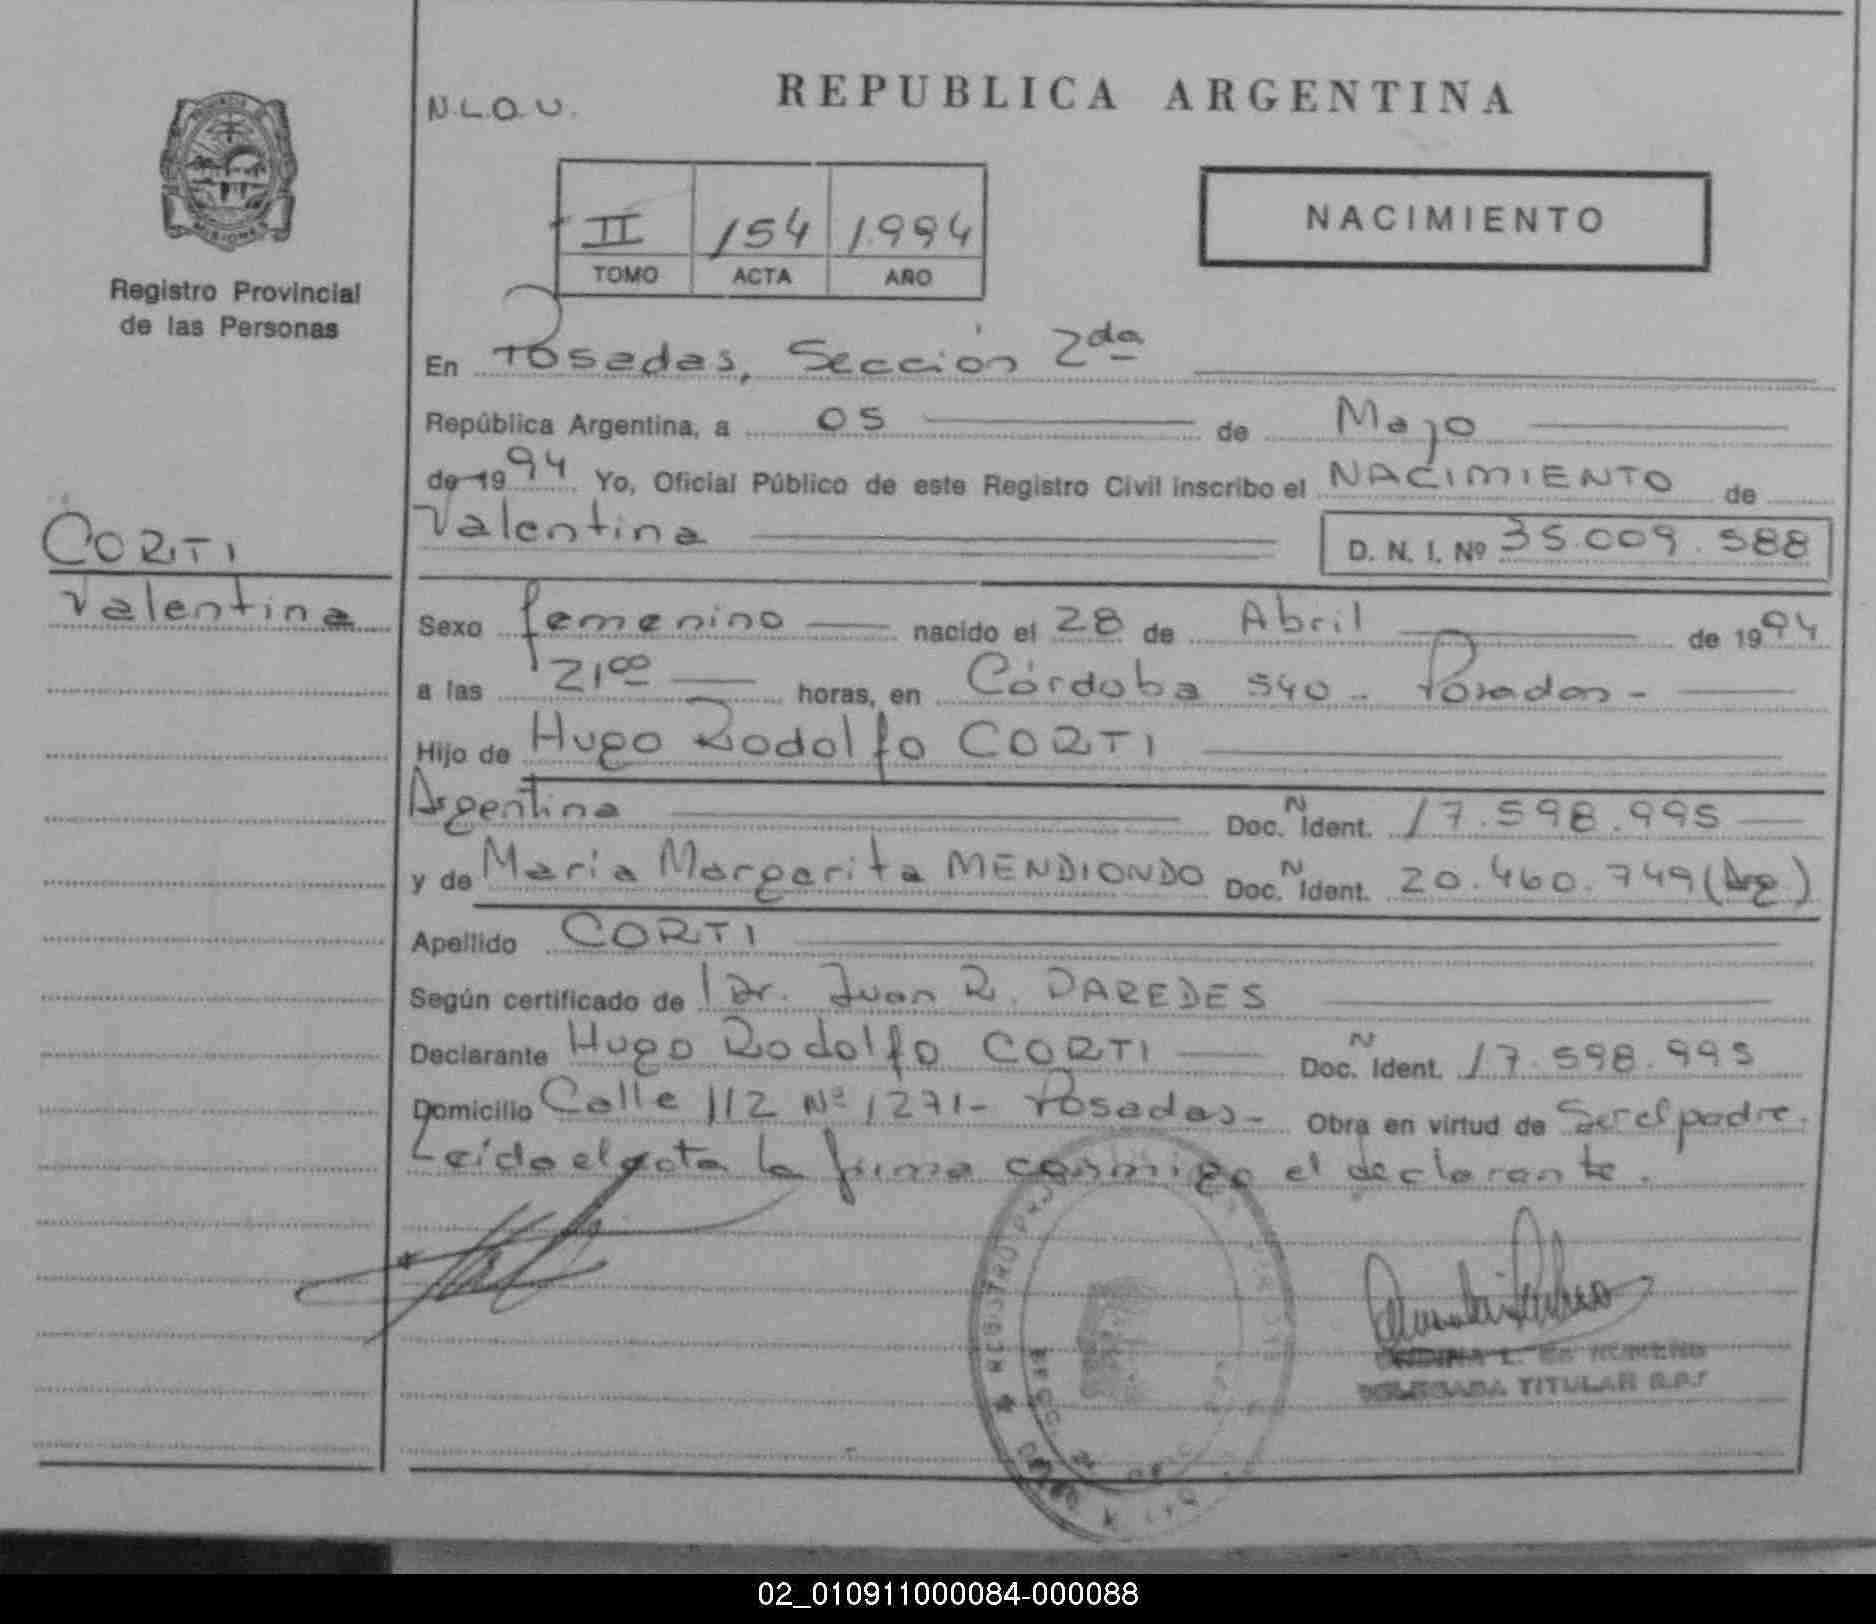 N.L.O.U.
REPUBLICA ARGENTINA
NACIMIENTO
II 154 1994
TOMO ACTA AÑO
MISIONES
Registro Provincial
de las Personas
En Posadas, Sección 2da
República Argentina, a 05 de Mayo
de 1994 Yo, Oficial Público de este Registro Civil inscribo el NACIMIENTO de
Valentina D. N. I. Nº 35.009.588
CORTI
Valentina
Sexo femenino nacido el 28 de Abril de 1994
a las 21oo horas, en Córdoba 540 - Posadas -
Hijo de Hugo Rodolfo CORTI
Argentina Doc. N Ident. 17.598.995
y de María Margarita MENDIONDO Doc. N Ident. 20.460.749 (Arg.)
Apellido CORTI
Según certificado de Dr. Juan R. PAREDES
Declarante Hugo Rodolfo CORTI Doc. N Ident. 17.598.995
Domicilio Calle 112 Nº 1271 - Posadas - Obra en virtud de Ser el padre.
Leída el acta la firma conmigo el declarante.
REGISTRO
DELEGADA TITULAR R.P.P
02_010911000084-000088